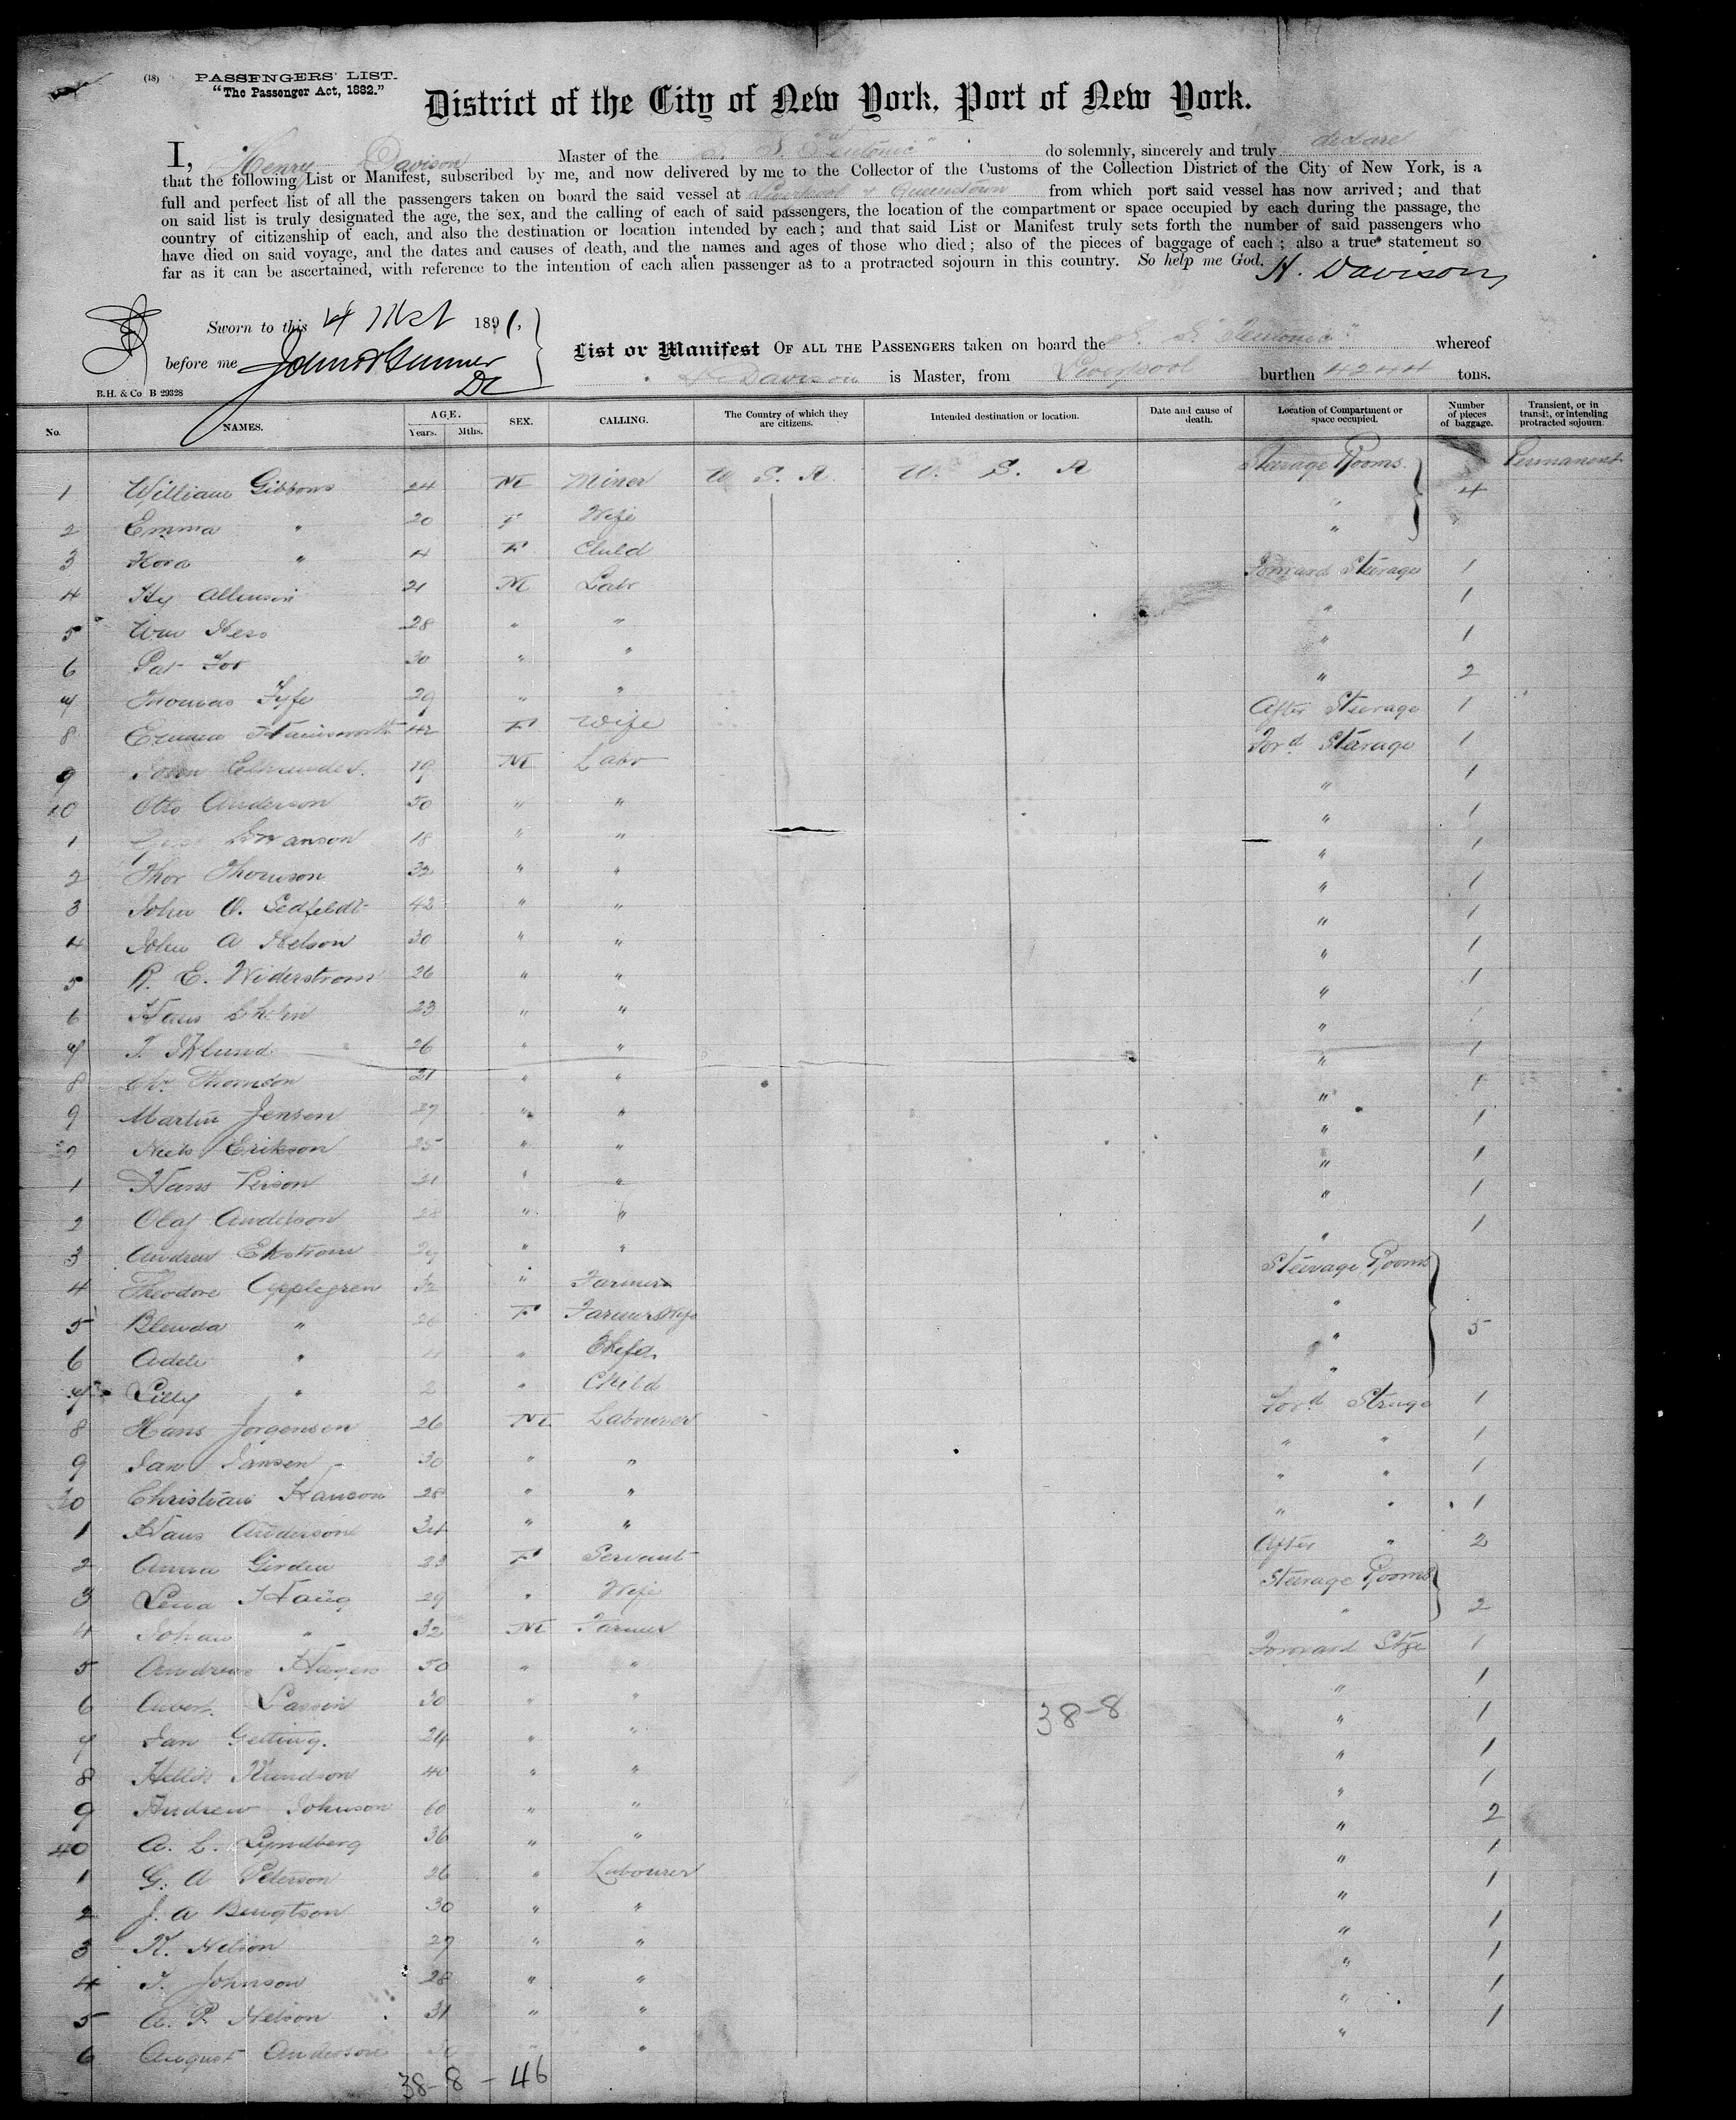 (18) PASSENGERS' LIST.
"The Passenger Act, 1882."
District of the City of New York, Port of New York.
I, Henry Davison Master of the S. S. "Teutonic" do solemnly, sincerely and truly declare
that the following List or Manifest, subscribed by me, and now delivered by me to the Collector of the Customs of the Collection District of the City of New York, is a
full and perfect list of all the passengers taken on board the said vessel at Liverpool & Queenstown from which port said vessel has now arrived; and that
on said list is truly designated the age, the sex, and the calling of each of said passengers, the location of the compartment or space occupied by each during the passage, the
country of citizenship of each, and also the destination or location intended by each; and that said List or Manifest truly sets forth the number of said passengers who
have died on said voyage, and the dates and causes of death, and the names and ages of those who died; also of the pieces of baggage of each; also a true statement so
far as it can be ascertained, with reference to the intention of each alien passenger as to a protracted sojourn in this country. So help me God. H. Davison
Sworn to this 4 1891,
before me
B.H. & Co B 29328
List or Manifest OF ALL THE PASSENGERS taken on board the S. S. "Teutonic" whereof
H. Davison is Master, from Liverpool burthen 4244 tons.
No. NAMES. AGE. Years. Mths. SEX. CALLING. The Country of which they are citizens. Intended destination or location. Date and cause of death. Location of Compartment or space occupied. Number of pieces of baggage. Transient, or in transit, or intending protracted sojourn.
1 William Gibbons 24 M Miner U. S. A. U. S. A Steerage Rooms 4 Permanent
2 Emma " 20 F Wife "
3 " 4 F Child "
4 Hy 21 M Labr Forward Steerage 1
5 Wm 28 " " " 1
6 Pat 30 " " " 1
7 Thomas Fyfe 29 " " " 2
8 Emma Hainsworth 42 F Wife After Steerage 1
9 John 19 M Labr Ford Steerage 1
10 Otto Anderson 50 " " " 1
1 Swanson 18 " " " 1
2 Thor Thomson 32 " " " 1
3 John O. Sedfeldt 42 " " " 1
4 John A Nelson 30 " " " 1
5 R. E. Widerstrom 26 " " " 1
6 Hans 23 " " " 1
7 26 " " "
8 Thomson 21 " " " 1
9 Martin Jensen " " " 1
20 Niels Erikson 25 " " " 1
1 Hans Person 21 " " " 1
2 Olaf Anderson 28 " " " 1
3 Andrew Ekstrom " " " 1
4 Theodore Applegren 32 " Farmer Steerage Rooms
5 Blenda " 26 F Farmers Wife "
6 Adele " " Child " 5
7 Lilly " 2 " Child "
8 Hans Jorgensen 26 M Labourer Ford Strage 1
9 Jan Jansen 30 " " " " 1
30 Christian Hanson 28 " " " " 1
1 Hans Anderson 34 " " " " 1
2 Anna 23 F Servant After " 2
3 Lena Haug 29 " Wife Steerage Rooms
4 Johan " 32 M Farmer " 2
5 Andrew 50 " " Forward Stge 1
6 30 " " " 1
7 Jan Getting. 24 " " " 1
8 Knudson 40 " " " 1
9 Andrew Johnson 60 " " " 1
40 A. L. Lyndberg 36 " " " 2
1 G. A Peterson 26 " Labourer " 1
2 J. A Bengtson 30 " " " 1
3 K. Nelson 27 " " " 1
4 Johnson 28 " " " 1
5 A. P. Nelson 31 " " " 1
6 August Anderson " " 1
38-8
38-8-46